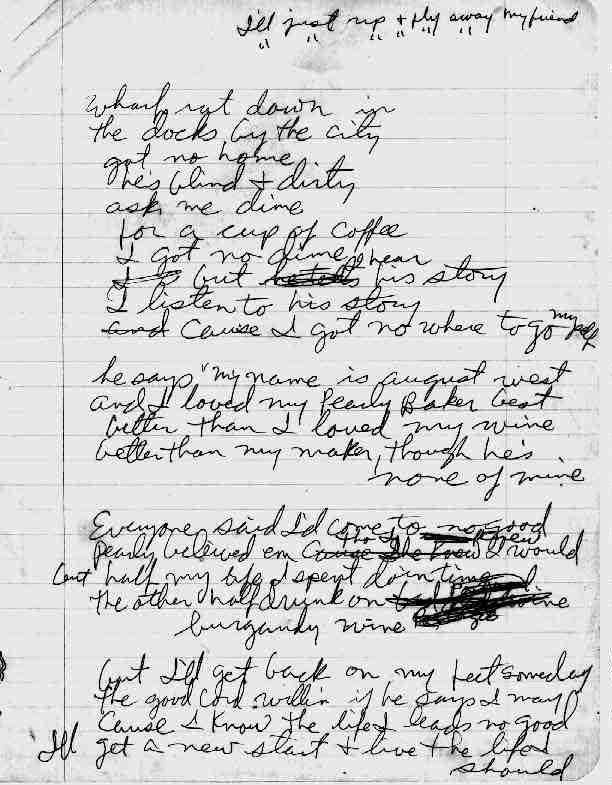 I'll just up + fly away my friend
" " " " " "
Wharf rat down in
the docks by the city
got no home
he's blind + dirty
ask me dime
for a cup of coffee
I got no dime
but hear his story
I listen to his story
and Cause I got no where to go myself
he says "my name is august west
and I loved my Pearly Baker best
better than I loved my wine
better than my maker, though he's
none of mine
Everyone said I'd come to no good
pearly believed em Cause She Knew I would
but half my life I spent doin time
the other half drunk on
burgandy wine
but I'll get back on my feet someday
the good Lord willin if he says I may
Cause I Know the life I leads no good
I'll get a new start + live the life I
should